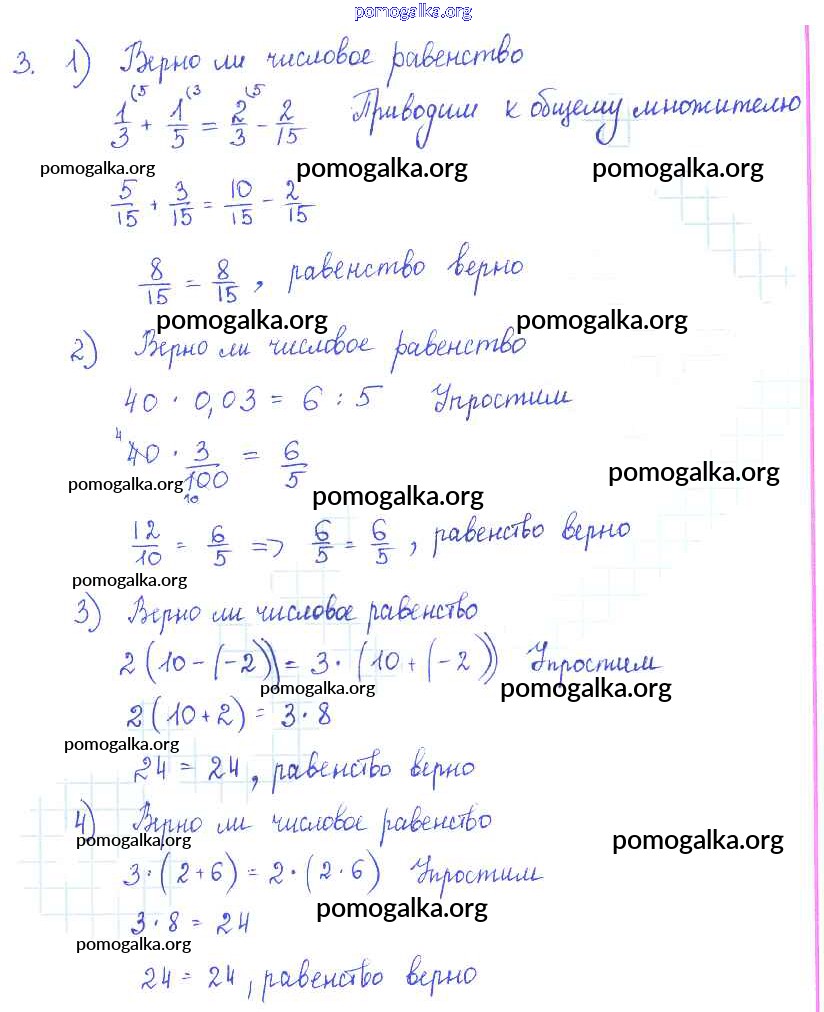 pomogalka.org
3. 1) Верно ли числовое равенство
1/3 (5 + 1/5 (3 = 2/3 (5 - 2/15 Приводим к общему множителю
pomogalka.org pomogalka.org pomogalka.org
5/15 + 3/15 = 10/15 - 2/15
8/15 = 8/15, равенство верно
pomogalka.org pomogalka.org
2) Верно ли числовое равенство
40 · 0,03 = 6 : 5 Упростим
4 40 · 3/100 10 = 6/5
pomogalka.org pomogalka.org pomogalka.org
12/10 = 6/5 => 6/5 = 6/5, равенство верно
pomogalka.org
3) Верно ли числовое равенство
2(10-(-2)) = 3·(10+(-2)) Упростим
pomogalka.org pomogalka.org
2(10+2) = 3·8
pomogalka.org
24 = 24, равенство верно
4) Верно ли числовое равенство
pomogalka.org pomogalka.org
3·(2+6) = 2·(2·6) Упростим
3·8 = 24
pomogalka.org
pomogalka.org
24 = 24, равенство верно